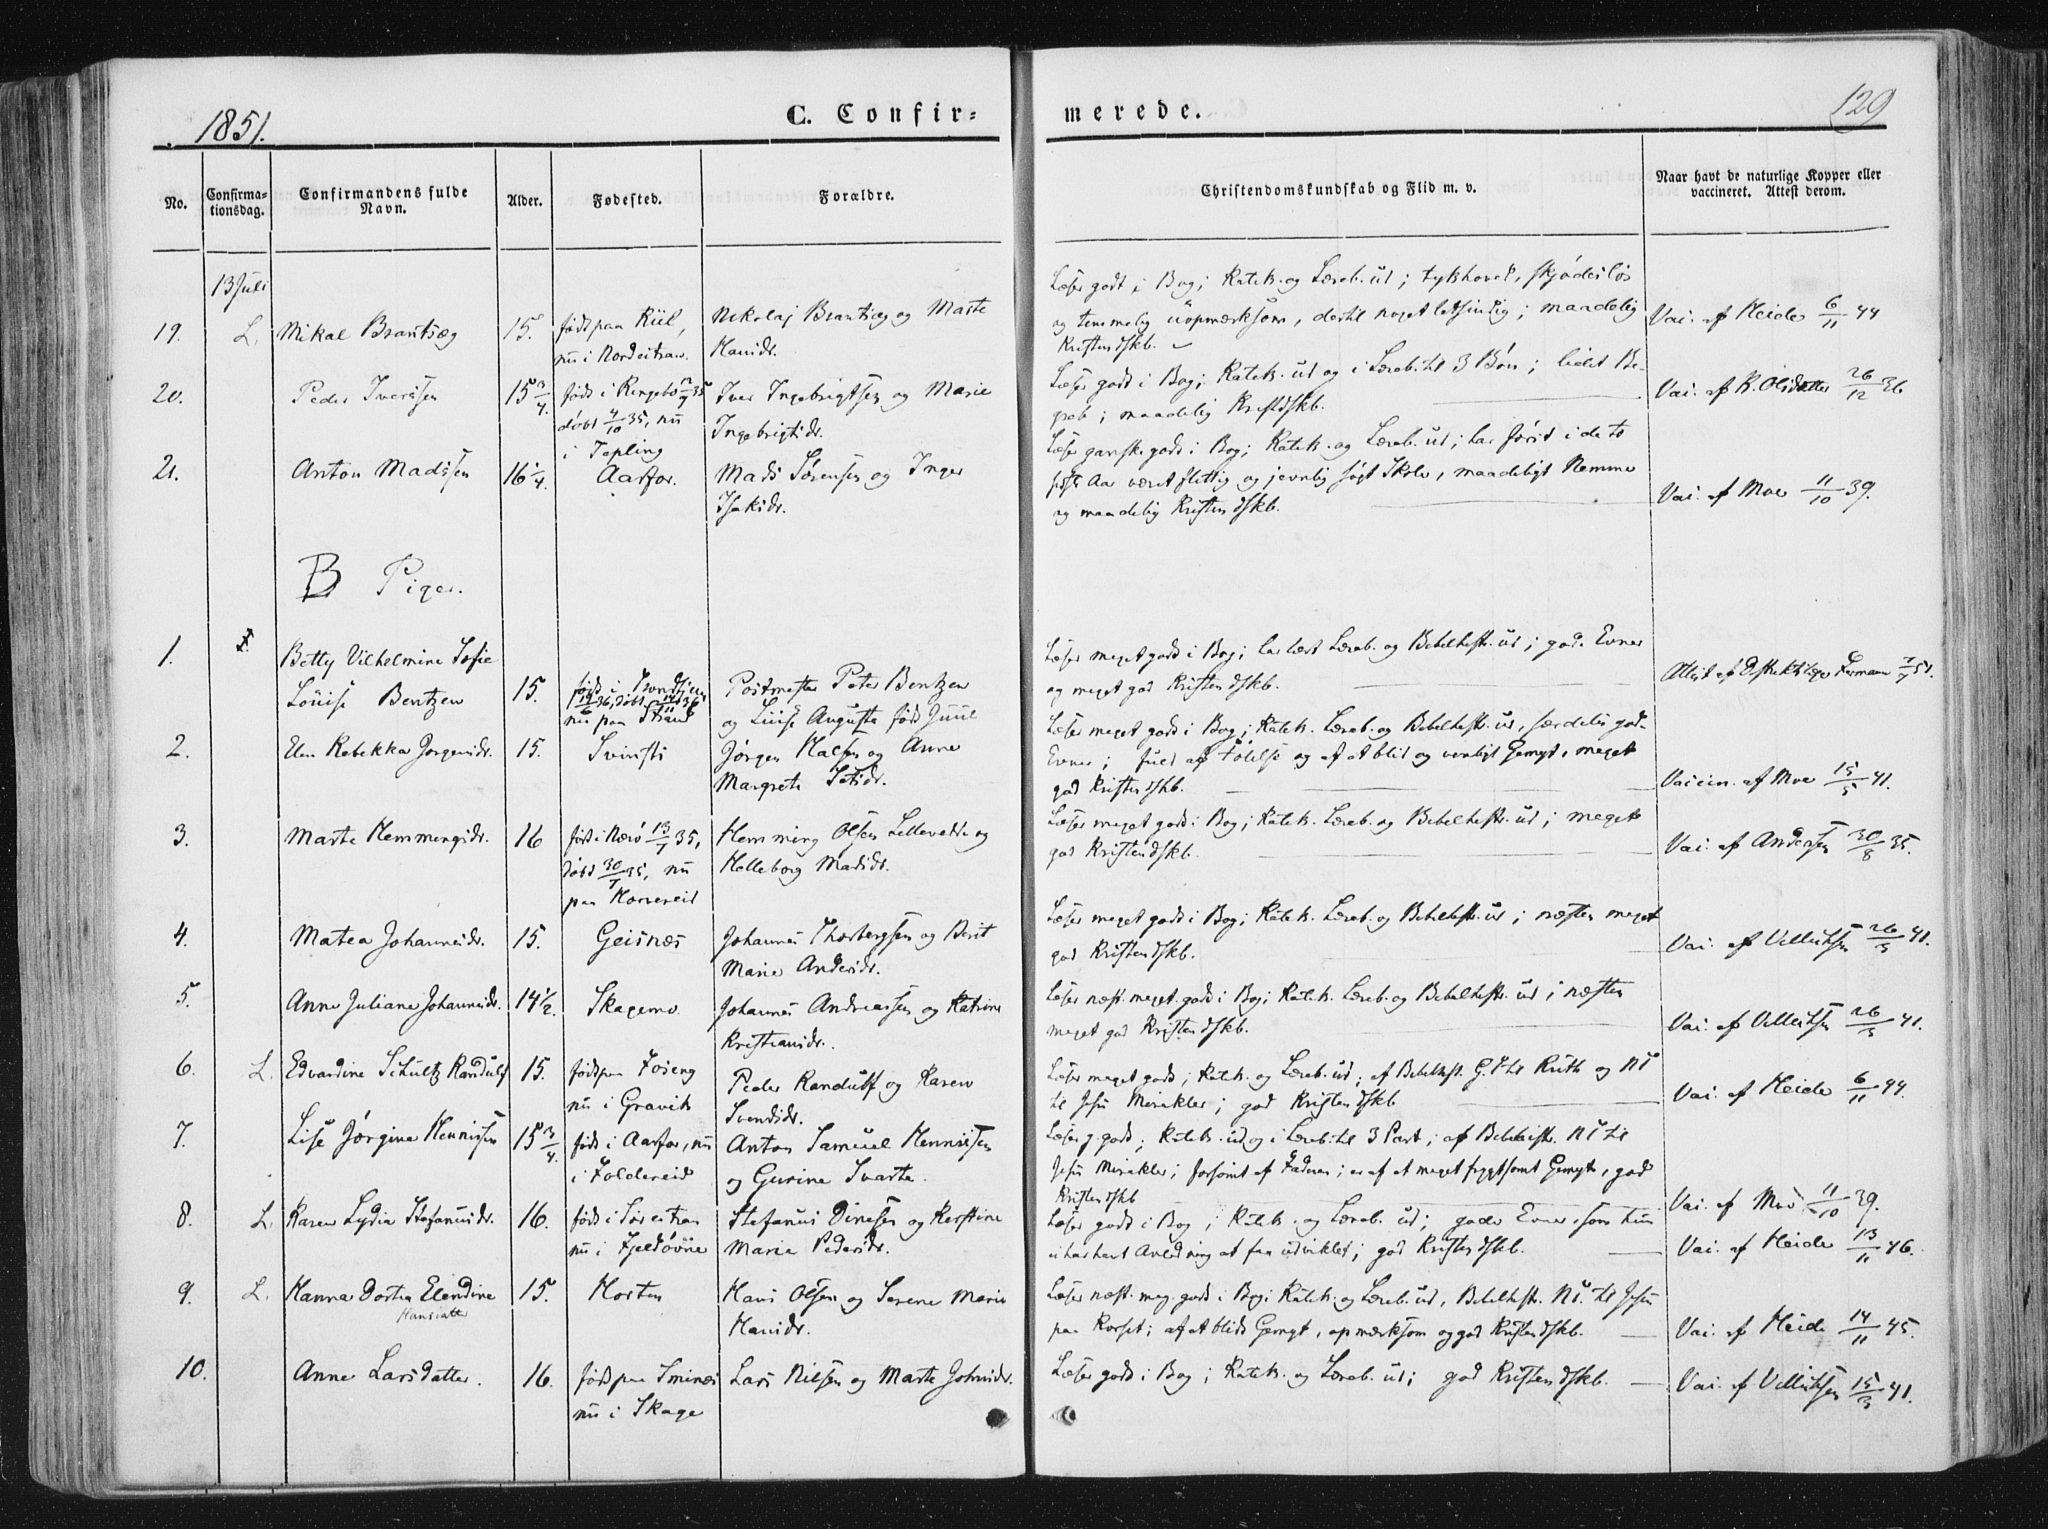 1851.
C. Confir-
merede.
129
No.
Confirma-
tionsdag.
Confirmandens fulde
Navn.
Alder.
Fødested.
Forældre.
Christendomskundskab og Flid m. v.
Naar havt de naturlige Kopper eller
vaccineret. Attest derom.
13 Juli
19. L. Mikal Brantsæg 15. født paa Riil,
nu i Nordeitran.
Nikolaj Brantsæg og Marte
Hansdr.
Læser godt i Bog; Katek. og Læreb. ud; tykhovet, skjødesløs
og temmelig uopmærksom, dertil noget letsindig; maadelig
Kristendskb.
Vac. af Heide 6/11 44
20. Peder Iversen 15 3/4.
døbt 4/10 35, nu
i Tepling
Iver Ingebrigtsen og Marie
Ingebrigtsdr.
Læser godt i Bog; Katek. ud og i Læreb. til 3 Bøn; lidet Be-
greb; maadelig Kristdskb.
Vac. af K. Olsdatter 26/12 36
21. Anton Madssen 16 1/4. Aarfor.
Mads Sørensen og Inger
Isaksdr.
Læser ganske godt i Bog; Katek. og Læreb. ud; har først i de to
sidste Aar været flittig og jevnlig søgt Skole, maadeligt Nemme
og maadelig Kristendskb.
Vac. af Moe 11/10 39.
B Piger.
1. Betty Vilhelmine Sofie
Louise Bentzen 15.
nu paa Strand
Postmester Peter Bentzen
og Luise Augusta født Juul
Læser meget godt i Bog; har læst Læreb. og Bibelhistr. ud; gode Evner
og meget god Kristendskb.
2. Elen Rebekka Jørgensdr. 15. Svinsti
Jørgen Halsen og Anne
Margrete
Læser meget godt i Bog; Katek. Læreb. og Bibelhistr. ud, særdeles gode
Evner; fuld af Følelse og af et blid og venligt Gemyt, meget
god Kristendskb.
Vaccin. af Moe 15/5 41.
3. Marte Hemmingsdr. 16 født i Nærø 13/1 35,
døbt 30/1 35, nu
paa Horsereid
Hemming Olsen Lillevedde og
Helleborg Madsdr.
Læser meget godt i Bog; Katek. Læreb. og Bibelhistr. ud; meget
god Kristendskb.
Vac. af Andersen 30/8 35.
4. Matea Johannesdr. 15. Geisnæs
Johannes Thorbergsen og Berit
Marie Andersdr.
Læser meget godt i Bog; Katek. Læreb. og Bibelhistr. ud; næsten meget
god Kristendskb.
Vac. af Villiksen 26/3 41.
5. Anne Juliane Johannesdr. 14 1/2. Skagemo
Johannes Andreassen og Katrine
Kristiansdr.
Læser næst. meget godt i Bog; Katek. Læreb. og Bibelhistr. ud; næsten
meget god Kristendskb.
Vac. af Villiksen 26/3 41.
6. L. Edvardine Schultz Randulf 15. født paa Foseng
nu i Gravik
Peder Randulf og Karen
Svendsdr.
Læser meget godt; Katek. og Læreb. ud; af Bibelhist. G.T. til Ruth og N.T.
til Jesu Mirakler; god Kristendskb
Vac. af Heide 6/11 44.
7. Lise Jørgine Hennissen 15 3/4. født i Aarfor, nu
i Foldereid
Anton Samuel Hennissen
og Gurine Svarta.
Læser g. godt; Katek. ud og i Læreb. til 3 Part; af Bibelhistr. N.T. til
Jesu Mirakler; forsømt af Faderen; er af et meget frygtsomt Gemyt, god
Kristendskb
Vac. af Moe 11/10 39.
8. L. Karen Lydia Stefanusdr. 16. født i Sør eitran
nu i Fjeldøvne
Stefanus Dinesen og Kerstine
Marie Pedersdr.
Læser godt i Bog; Katek. og Læreb. ud; gode Evner som hun
ei har havt Anledning at faa udviklet; god Kristendskb.
Vac. af Heide 13/11 46.
9. L. Hanna Dortea Elendine
Hansdatter
15. Horsten
Hans Olsen og Serene Marie
Hansdr.
Læser næst. meg. godt i Bog; Katek. og Læreb. ud, Bibelhistr. N.T. til Jesu
paa Korset; af et blidt Gemyt, opmærksom og god Kristendskb.
Vac. af Heide 14/11 45.
10. Anne Larsdatter. 16. født paa Sminæs
nu i Skage
Lars Nilsen og Marte Johnsdr.
Læser godt i Bog; Katek. og Læreb. ud; god Kristendskb.
Vac. af Villiksen 15/3 41.